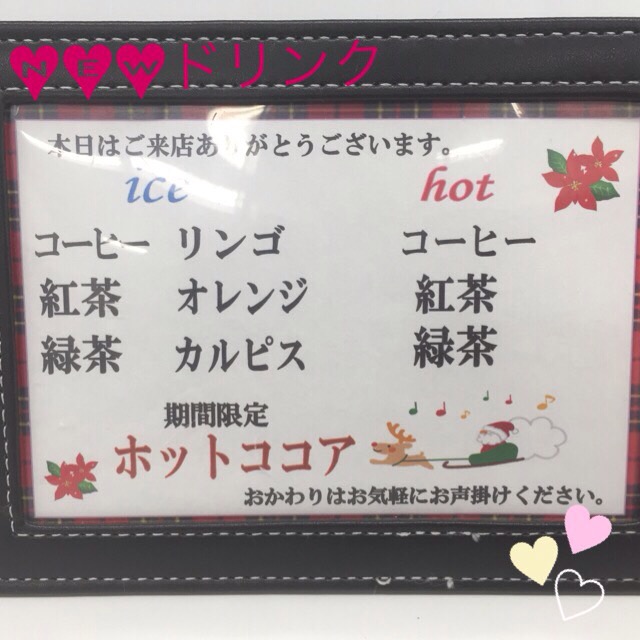 NEWドリンク
本日はご来店ありがとうございます。
ice hot
コーヒー リンゴ コーヒー
紅茶 オレンジ 紅茶
緑茶 カルピス 緑茶
期間限定
ホットココア
おかわりはお気軽にお声掛けください。